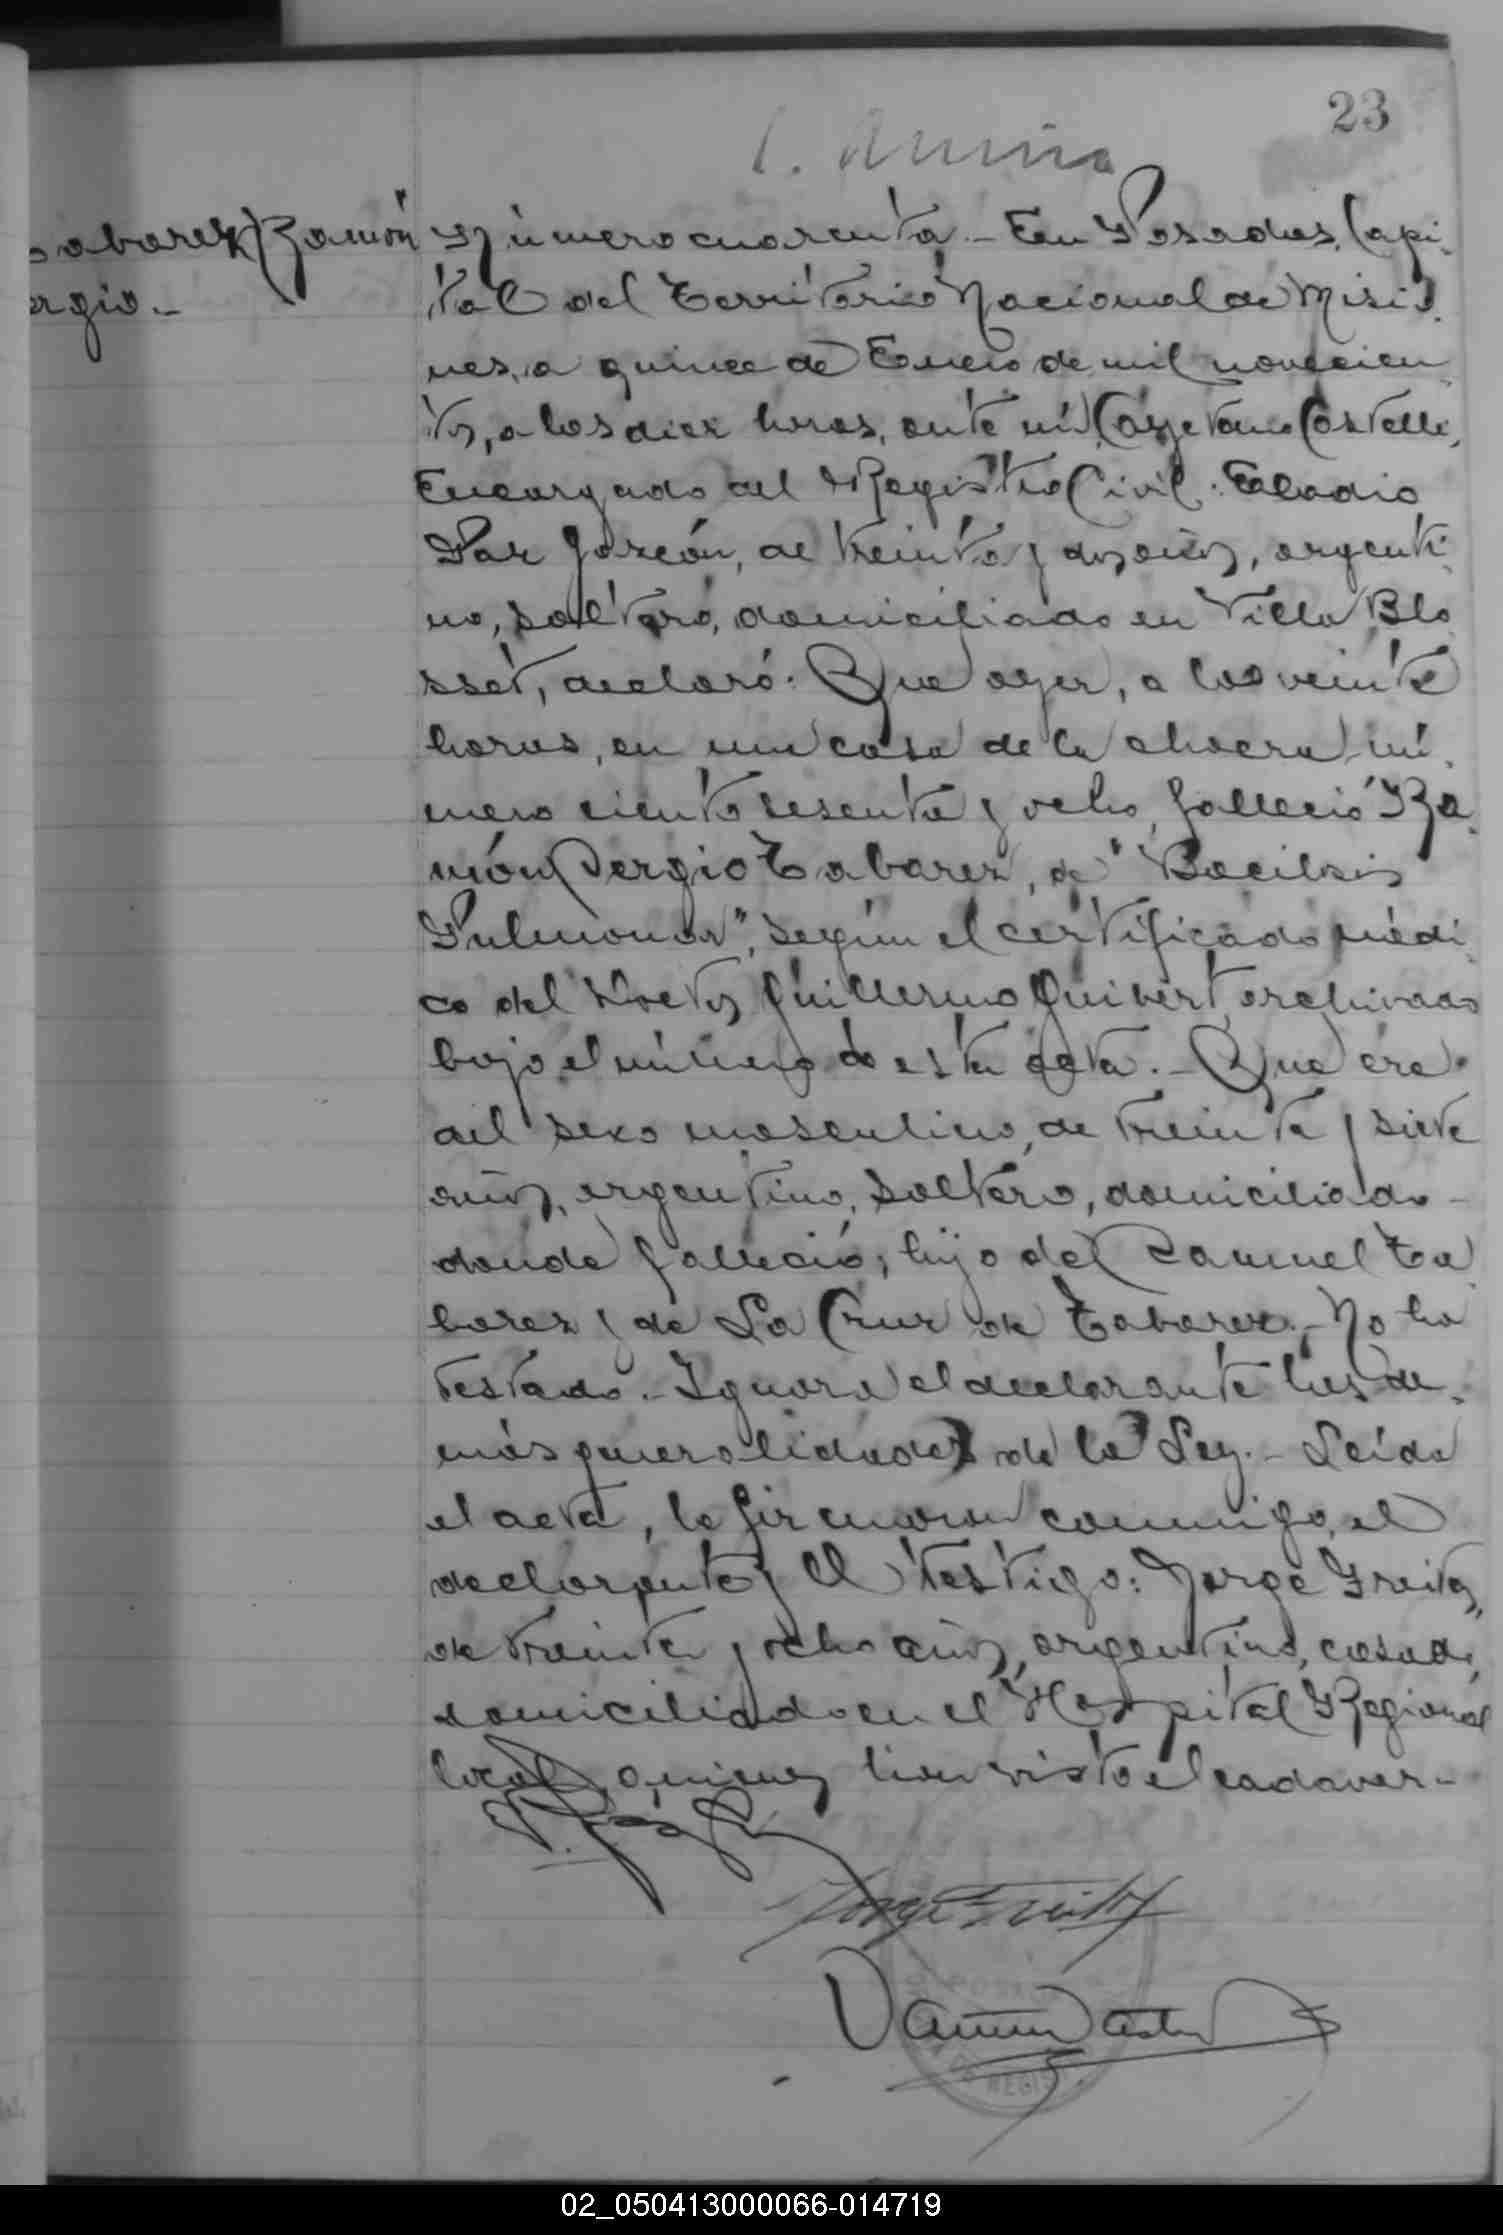 23
abarez Ramón
ergio.-
Número cuarenta.- En Posadas, Capi-
tal del Territorio Nacional de Misio-
nes, a quince de Enero de mil novecien-
tos, a las diez horas, ante mí, Cayetano Castelli,
Encargado del Registro Civil: Eladio
Paz Garzón, de treinta y dos años, argenti-
no, soltero, domiciliado en Villa Blo-
sset, declaró: Que ayer, a las veinte
horas, en una casa de la chacra nú-
mero ciento sesenta y ocho, falleció Ra-
món Sergio Tabarez, de "Bacilosis
Pulmonar", según el certificado médi-
co del Doctor Guillermo archivado
bajo el número de esta acta.- Que era
del sexo masculino, de treinta y siete
años, argentino, soltero, domiciliado
donde falleció; hijo de Ta-
barez y de La Cruz de Tabarez.- No ha
testado.- Ignora el declarante las de-
más generalidades de la Ley.- Leída
el acta, la firmaron conmigo, el
declarante y el testigo: Jorge Freitas,
de treinta y ocho años, argentino, casado,
domiciliado en el Hospital Regional
local, quienes han visto el cadaver.-
Jorge Freitas
02_050413000066-014719